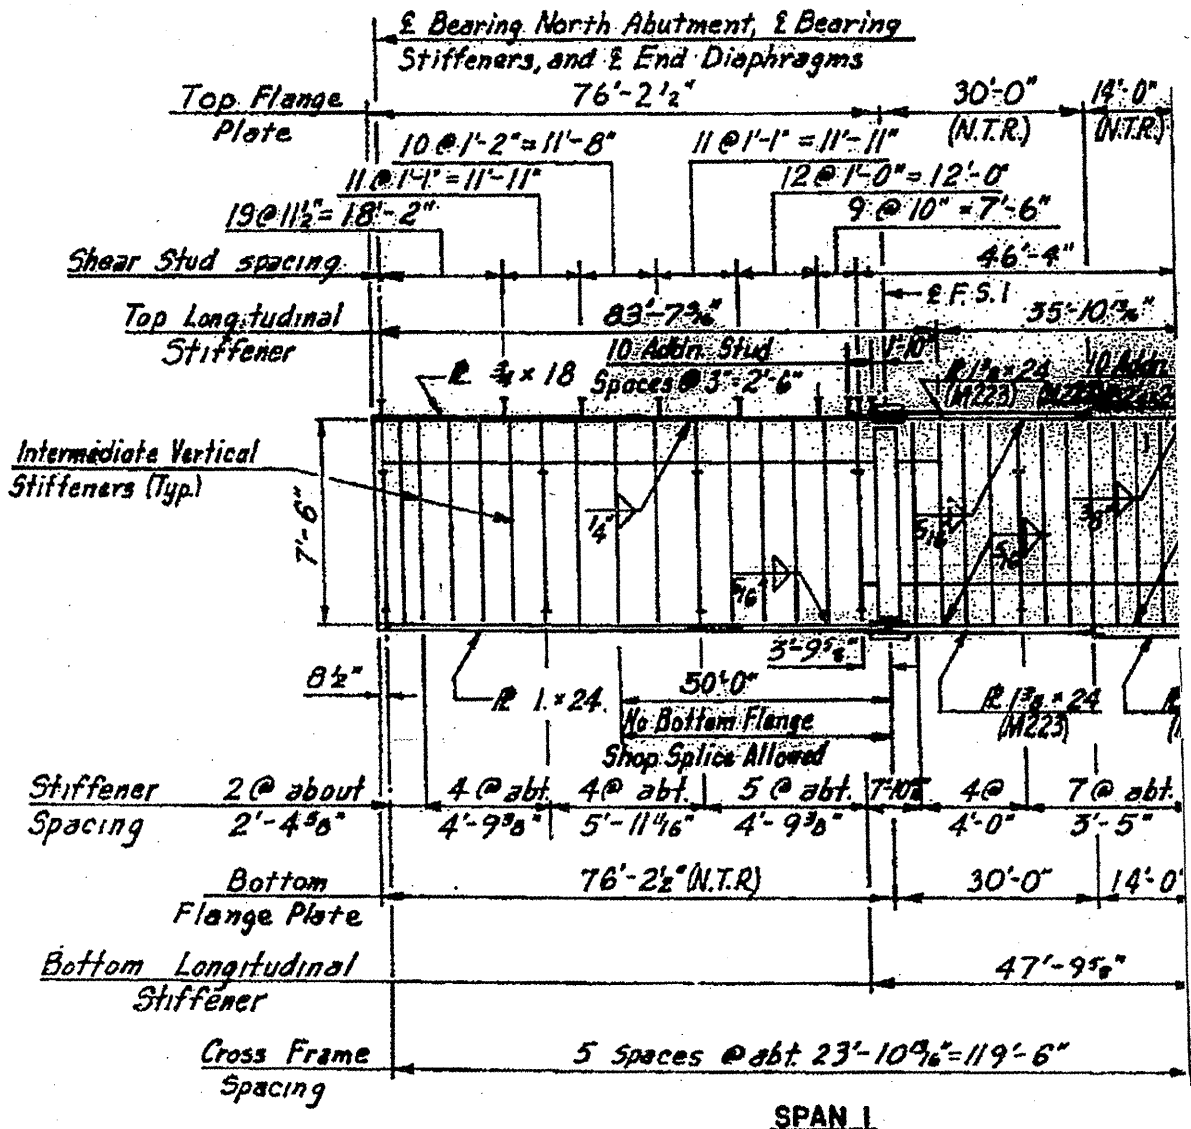 ℄ Bearing North Abutment, ℄ Bearing
Stiffeners, and ℄ End Diaphragms
Top Flange
Plate
76'-2½"
30'-0"
(N.T.R.)
14'-0"
(N.T.R.)
10 @ 1'-2" = 11'-8"
11 @ 1'-1" = 11'-11"
11 @ 1'-1" = 11'-11"
12 @ 1'-0" = 12'-0"
19 @ 11½" = 18'-2"
9 @ 10" = 7'-6"
Shear Stud spacing
46'-4"
℄ F.S. 1
Top Longitudinal
Stiffener
83'-7 3/16"
35'-10 13/16"
10 Addn. Stud
Spaces @ 3" = 2'-6"
1'-10"
℞ ¾ × 18
℞ 1⅜ × 24
(M223)
10 Addn
Intermediate Vertical
Stiffeners (Typ.)
7'-6"
1/4"
5/16
5/16
5/16
3/8"
3'-9⅝"
8½"
℞ 1 × 24
50'-0"
No Bottom Flange
Shop Splice Allowed
℞ 1⅜ × 24
(M223)
Stiffener
Spacing
2 @ about
2'-4⅝"
4 @ abt.
4'-9⅜"
4 @ abt.
5'-11 11/16"
5 @ abt.
4'-9⅜"
4 @
4'-0"
7 @ abt.
3'-5"
Bottom
Flange Plate
76'-2½" (N.T.R)
30'-0"
14'-0"
Bottom Longitudinal
Stiffener
47'-9⅝"
Cross Frame
Spacing
5 Spaces @ abt. 23'-10 13/16" = 119'-6"
SPAN 1